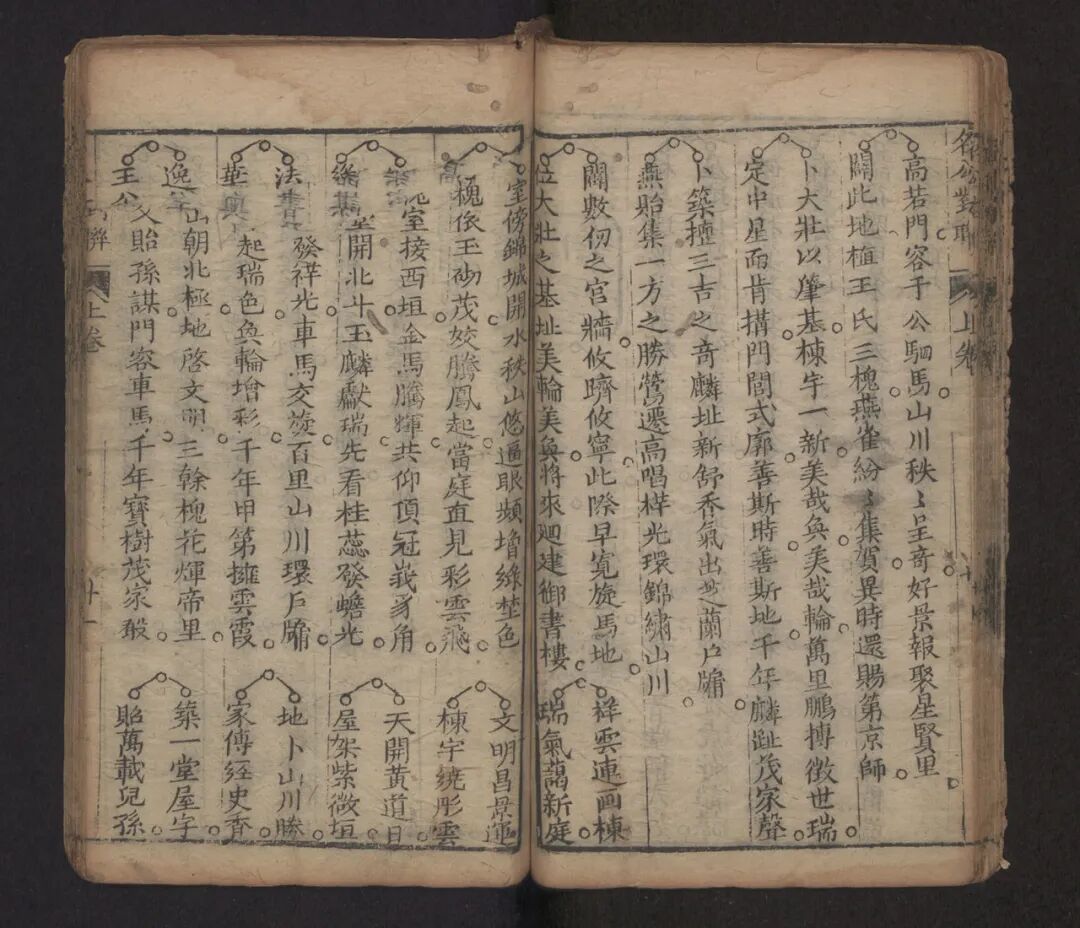 名公對聯 上卷
高若門容于公駟馬山川秩〻呈奇好景報聚星賢里
闢此地植王氏三槐燕雀紛〻集賀異時還賜第京師
卜大壯以肇基棟宇一新美哉奐美哉輪萬里鵬摶徵世瑞
定中星而肯搆門閭式廓善斯時善斯地千年麟趾茂家聲
卜築擅三吉之奇麟址新舒香氣出芝蘭户牖
燕貽集一方之勝鶯遷高唱樺光環錦綉山川
闢數仞之宫牆攸躋攸寧此際早寬旋馬地
位大壯之基址美輪美奐將來迴建御書樓
祥雲連画棟
瑞氣藹新庭
室傍錦城開水秩山悠逼眼頻增綠埜色
槐依玉砌茂姣騰鳳起當庭直見彩雲飛
文明昌景運
棟宇繞彤雲
室接西垣金馬騰輝共仰頂冠峩豸角
開北斗玉麟獻瑞先看桂蕊發蟾光
天開黄道日
屋架紫微垣
發祥光車馬交羨百里山川環户牖
起瑞色奐輪增彩千年甲第擁雲霞
地卜山川勝
家傳經史香
山朝北極地啓文明三餘槐花煇帝里
父貽孫謀門容車馬千年寶樹茂家聲
築一堂屋宇
貽萬載兒孫
上卷 十一